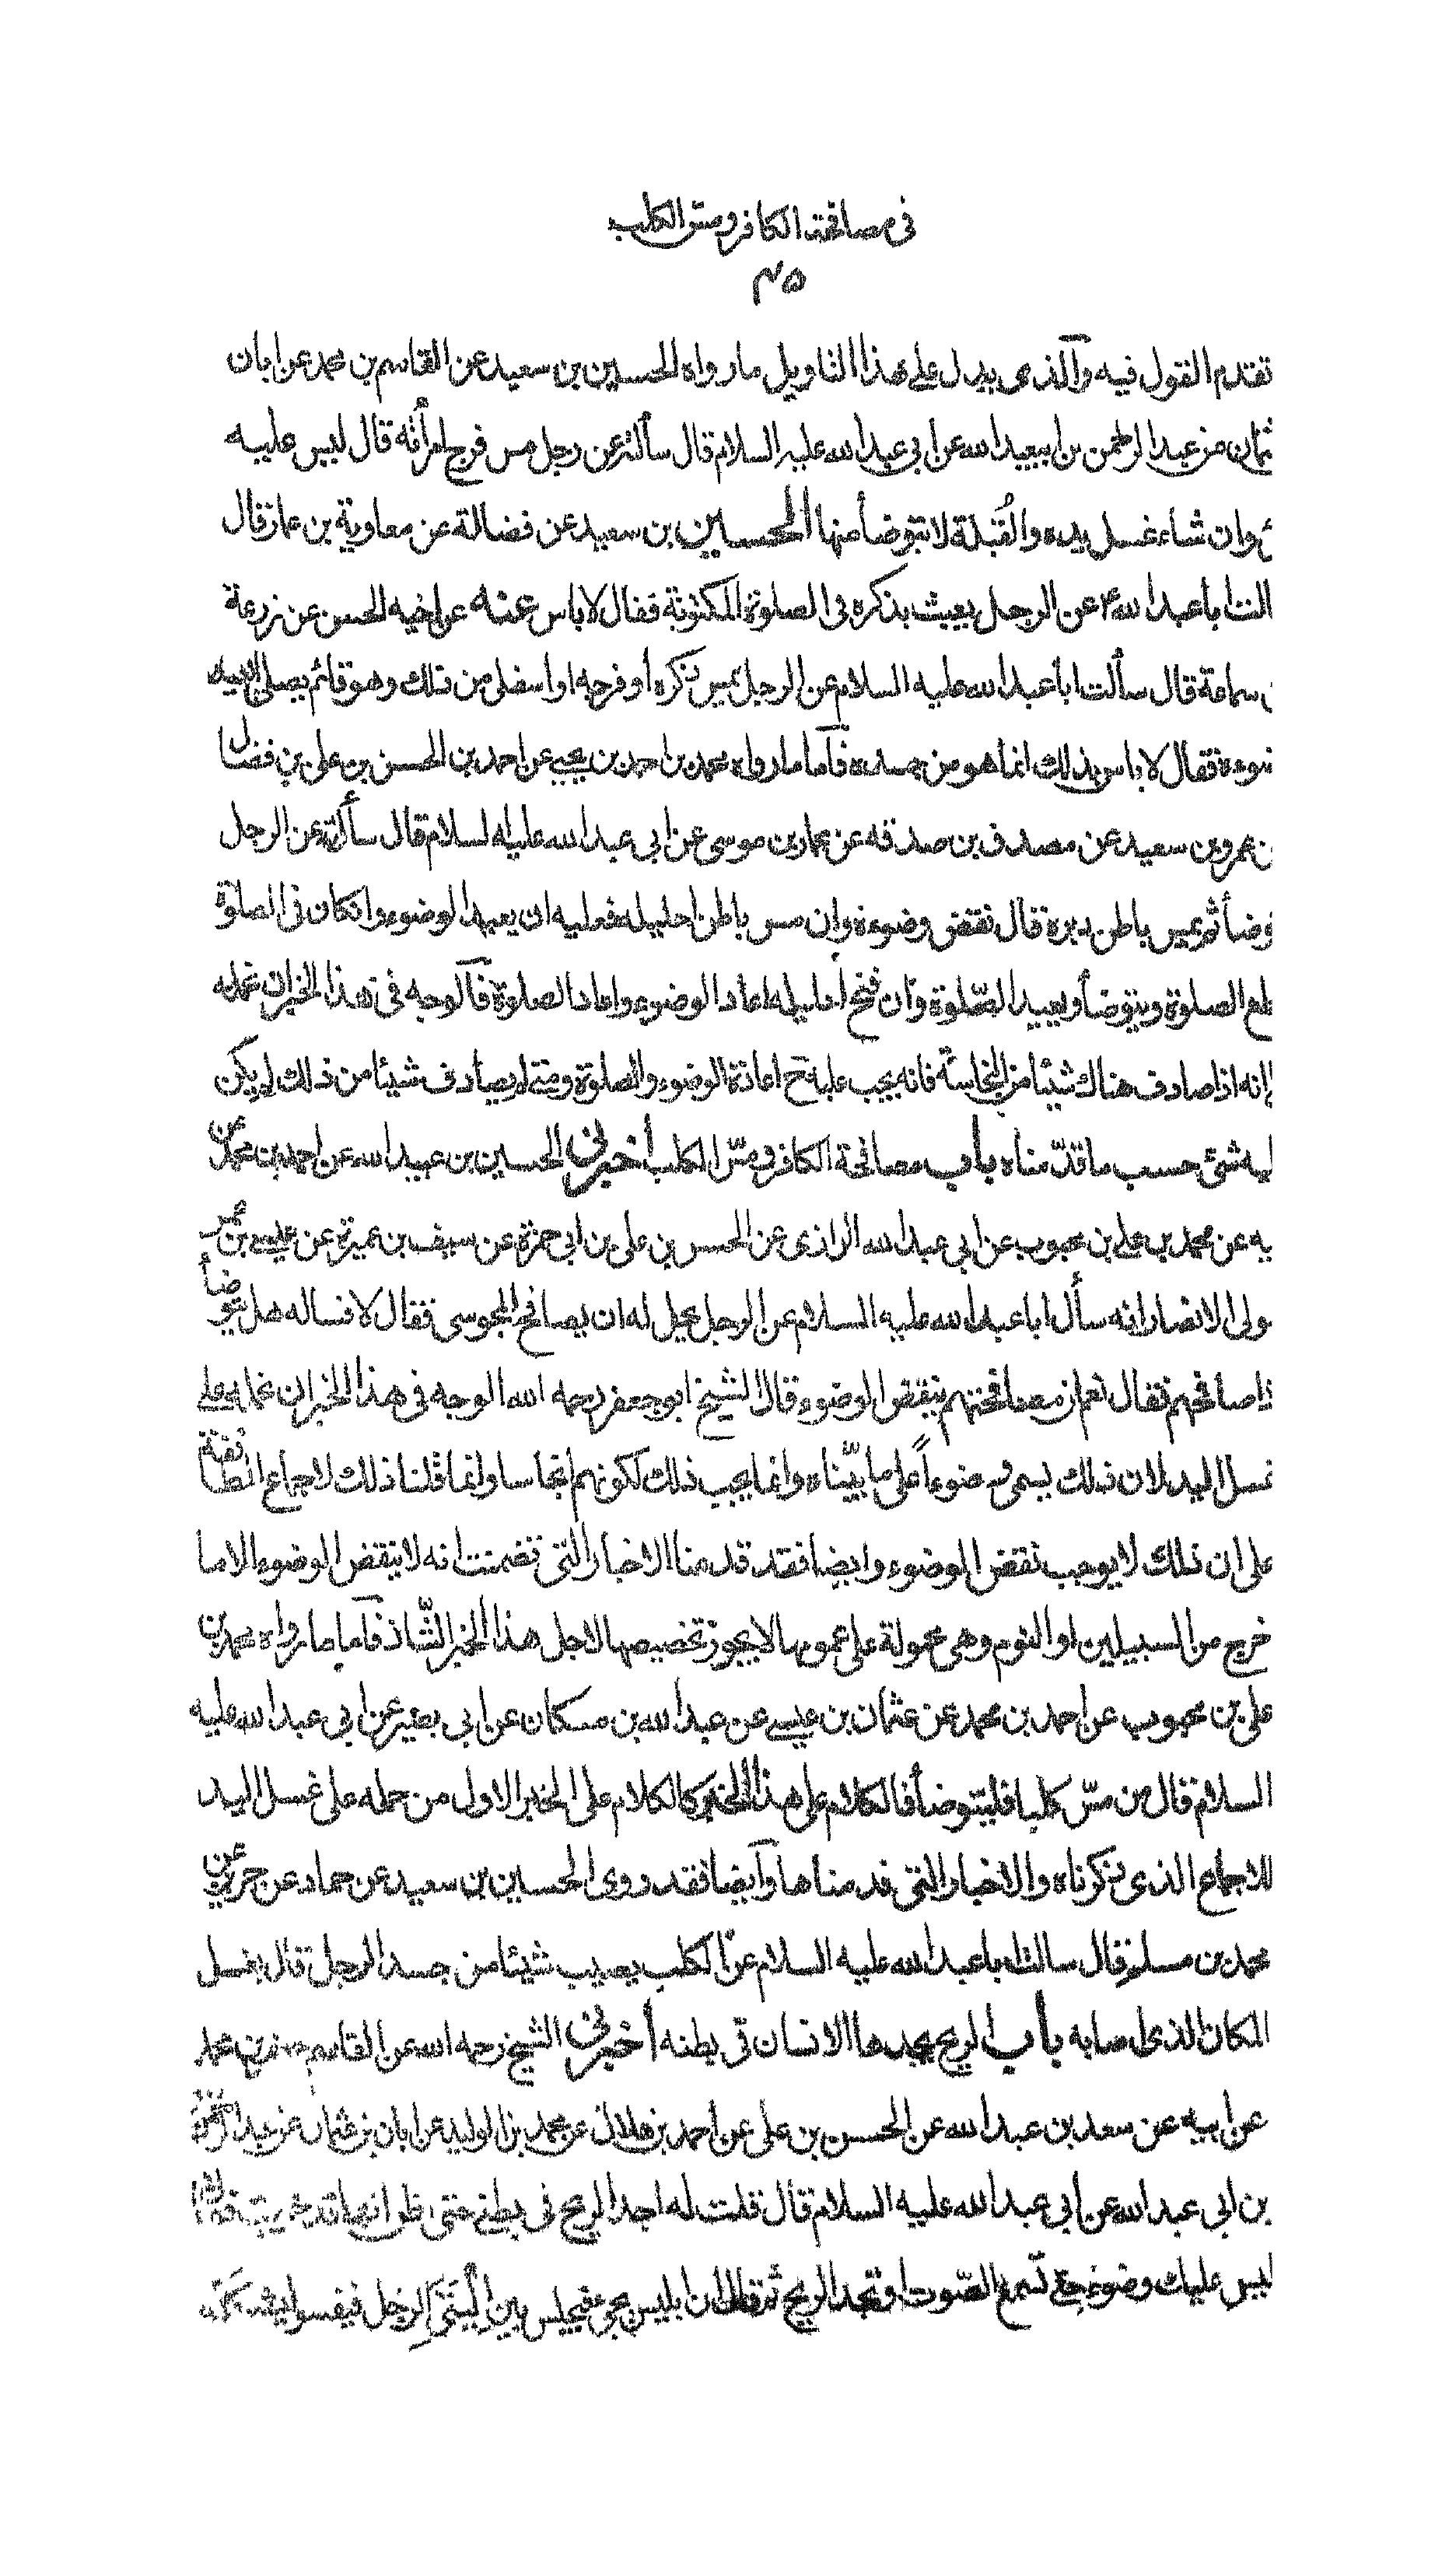 في مصافحة الكافر ومس الكلب
۴۵
تقدم القول فيه والذى يدل على هذا التاويل مارواه الحسين بن سعيد عن القاسم بن محمد عن ابان
ثمان عن عبد الرحمن بن ابيعبد الله عن ابى عبد الله عليه السلام قال سألته عن رجل مس فرج امرأته قال ليس عليه
ئ وان شاء غسل يده والقُبْلة لا تتوضأ منها الحسين بن سعيد عن فضالة عن معاوية بن عمار قال
الت اباعبد الله ع عن الرجل يعبث بذكره فى الصلوة المكتوبة فقال لا باس عنه عن اخيه الحسن عن زرعة
ن سماعة قال سألت اباعبد الله عليه السلام عن الرجل يمس ذكره أو فرجه او اسفل من ذلك وهو قائم يصلى ايعيد
ضوءه فقال لا باس بذلك انما هو من جسده فأما مارواه محمد بن احمد بن يحيى عن احمد بن الحسن بن على بن فضال
ن عمرو بن سعيد عن مصدق بن صدقه عن عمار بن موسى عن ابى عبد الله عليه السلام قال سألته عن الرجل
وضأ ثم يمس باطن دبره قال نقض وضوءه وان مس باطن احليله فعليه ان يعيد الوضوء وانكان فى الصلوة
طع الصلوة ويتوضأ ويعيد الصّلوة وان فتح احليله اعاد الوضوء واعاد الصلوة فالوجه فى هذا الخبر ان نحمله
انه اذا صادف هناك شيئا من النجاسة فانه يجب عليه ح اعادة الوضوء والصلوة ومتى لم يصادف شيئا من ذلك لم يكن
ليه شئ حسب ما قدّمناه باب مصافحة الكافر ومسّ الكلب أخبرنى الحسين بن عبيد الله عن احمد بن محمد عن
يه عن محمد بن على بن محبوب عن ابى عبد الله الرازى عن الحسن بن على بن ابى حمزة عن سيف بن عميرة عن عيسى بن عمر
ولى الانصار انه سأل اباعبد الله عليه السلام عن الرجل يحل له ان يصافح المجوسى فقال لا فساله هل يتوضأ
ذا صافحهم فقال نعم ان مصافحتهم ينقض الوضوء قال الشيخ ابو جعفر رحمه الله الوجه فى هذا الخبر ان نحمله على
غسل اليد لان ذلك يسمى وضوءاً على ما بيّناه وانما يجب ذلك لكونهم انجاسا وانما قلنا ذلك لاجماع الطائفة
على ان ذلك لا يوجب نقض الوضوء وايضا فقد قدمنا الاخبار التى تضمنت انه لا ينقض الوضوء الا ما
خرج من السبيلين او النوم وهى محمولة على عمومها لا يجوز تخصيصها لاجل هذا الخبر الشّاذ فأما ما رواه محمد بن
على بن محبوب عن احمد بن محمد عن عثمان بن عيسى عن عبد الله بن مسكان عن ابى بصير عن ابى عبد الله عليه
السلام قال من مسّ كلبا فليتوضأ فالكلام على هذا الخبر كالكلام على الخبر الاول من حمله على غسل اليد
للاجماع الذى ذكرناه والاخبار التى قدمناها وايضا فقد روى الحسين بن سعيد عن حماد عن حريز عن
محمد بن مسلم قال سالت اباعبد الله عليه السلام عن الكلب يصيب شيئا من جسد الرجل قال يغسل
المكان الذى اصابه باب الريح يجدها الانسان فى بطنه أخبرنى الشيخ رحمه الله عن ابى القاسم جعفر بن محمد
عن ابيه عن سعد بن عبد الله عن الحسن بن على عن أحمد بن هلال عن محمد بن الوليد عن ابان بن عثمان عن عبد الرحمن
بن ابى عبد الله عن أبى عبد الله عليه السلام قال قلت له اجد الريح فى بطنى حتى اظن انها قد خرجت فقال
ليس عليك وضوء حتى تسمع الصّوت او تجد الريح ثم قال ان ابليس يجئ فيجلس بين اليتى الرجل فيفسو ليشككه